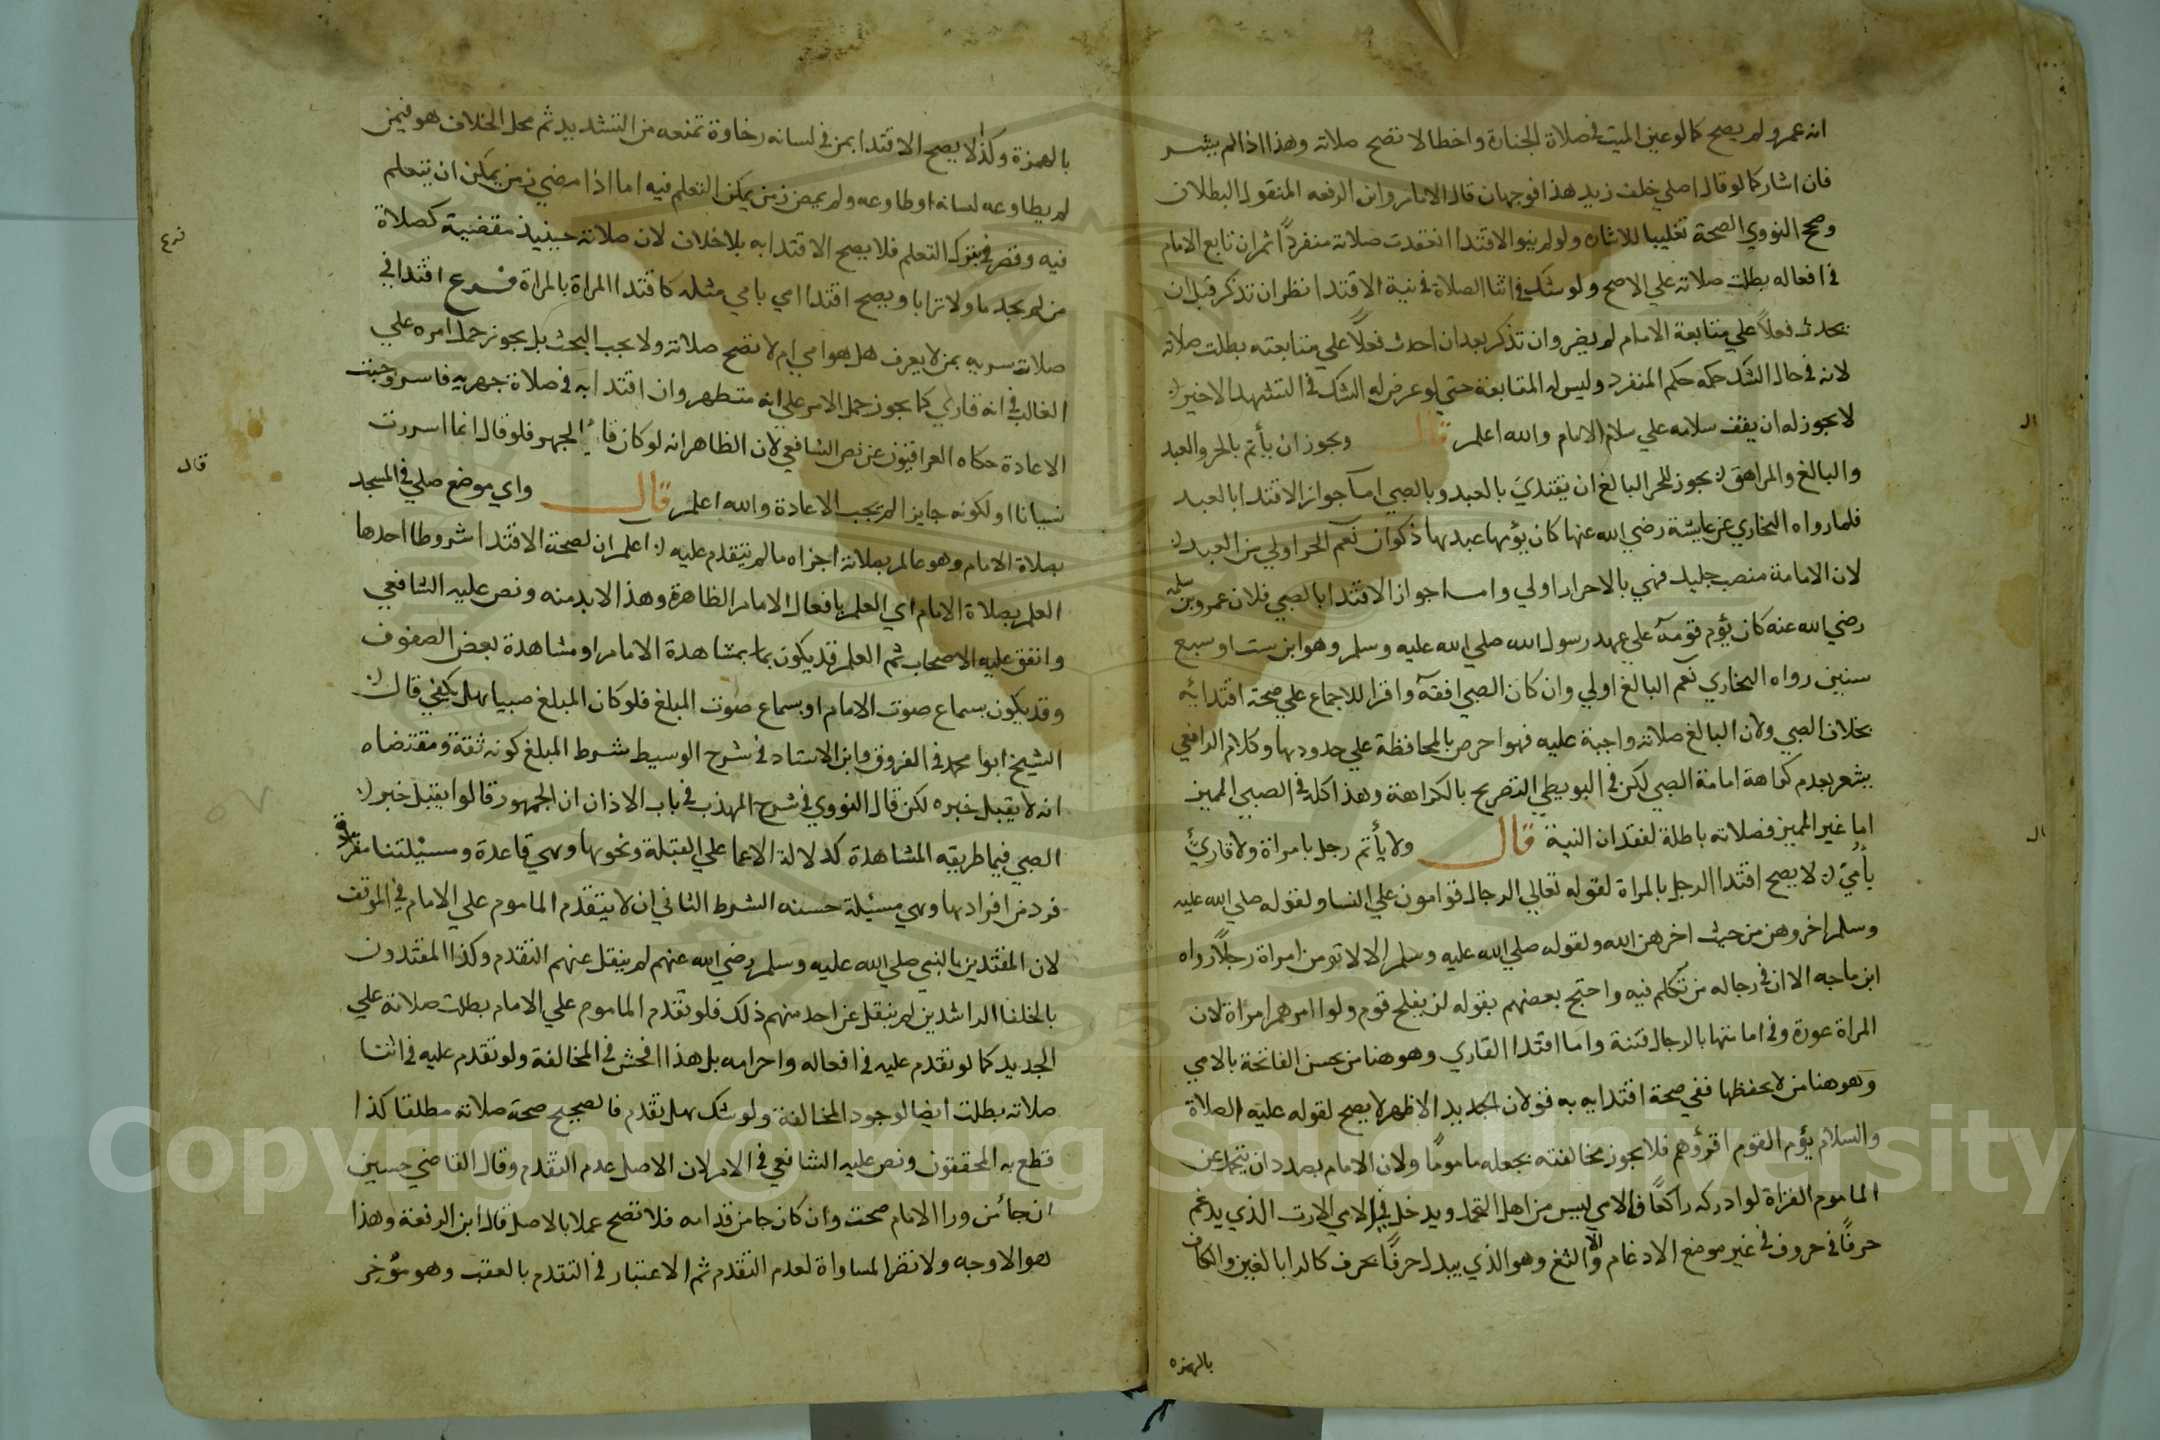 انه عمرو لم يصح كما لو عين الميت في صلاة الجنازة واخطا لا تصح صلاته وهذا اذا لم يشر
فان اشار كما لو قال اصلي خلف زيد هذا فوجهان قال الامام وابن الرفعه المنقول البطلان
وصحح النووي الصحة تغليبا للاشارة ولو لم ينو الاقتدا انعقدت صلاته منفردًا ثم ان تابع الامام
في افعاله بطلت صلاته علي الاصح ولو شك في اثنا الصلاة في نية الاقتدا نظر ان تذكر قبل ان
يحدث فعلاً علي متابعة الامام لم يضر وان تذكر بعد ان احدث فعلاً علي متابعته بطلت صلاته
لانه في حال الشك حكمه حكم المنفرد وليس له المتابعة حتي لو عرض له الشك في التشهد الاخير
لا يجوز له ان يقف سلامه علي سلام الامام والله اعلم قال ويجوز ان يأتم بالحر والعبد
والبالغ والمراهق يجوز للحر البالغ ان يقتدي بالعبد وبالصبي اما جواز الاقتدا بالعبد
فلما رواه البخاري عن عايشة رضي الله عنها كان يؤمها عبدها ذكوان نعم الحر اولي من العبد
لان الامامة منصب جليل فهي بالاحرار اولي واما جواز الاقتدا بالصبي فلان عمرو بن سلمة
رضي الله عنه كان يؤم قومه علي عهد رسول الله صلي الله عليه وسلم وهو ابن ست او سبع
سنين رواه البخاري نعم البالغ اولي وان كان الصبي افقه واقرا للاجماع علي صحة اقتدائه
بخلاف الصبي ولان البالغ صلاته واجبة عليه فهو احرص بالمحافظة علي حدودها وكلام الرافعي
يشعر بعدم كراهة امامة الصبي لكن في البويطي التصريح بالكراهة وهذا كله في الصبي المميز
اما غير المميز فصلاته باطلة لفقدان النية قال ولا يأتم رجل بامراة ولا قارئ
بأمي لا يصح اقتدا الرجل بالمراة لقوله تعالي الرجال قوامون علي النسا ولقوله صلي الله عليه
وسلم اخروهن من حيث اخرهن الله ولقوله صلي الله عليه وسلم الا لا تومن امراة رجلاً رواه
ابن ماجه الا ان في رجاله من تكلم فيه واحتج بعضهم بقوله لن يفلح قوم ولوا امرهم امراة لان
المراة عورة وفي امامتها بالرجال فتنة واما اقتدا القاري وهو هنا من يحسن الفاتحة بالامي
وهو هنا من لا يحفظها ففي صحة اقتدايه به قولان الجديد الاظهر لا يصح لقوله عليه الصلاة
والسلام يؤم القوم اقرؤهم فلا يجوز مخالفته بجعله مامومًا ولان الامام بصدد ان يتحمل عن
الماموم القراة لو ادركه راكعًا والامي ليس من اهل التحمل ويدخل في الامي الارت الذي يدغم
حرفًا في حروف في غير موضع الادغام والالثغ وهو الذي يبدل حرفًا بحرف كالرا بالغين والكاف
بالهمزه
ال
ال
بالهمزة وكذا لا يصح الاقتدا بمن في لسانه رخاوة تمنعه من التشديد ثم محل الخلاف هو فيمن
لم يطاوعه لسانه او طاوعه ولم يمض زمن يمكن التعلم فيه اما اذا مضي زمن يمكن ان يتعلم
فيه وقصر بترك التعلم فلا يصح الاقتدا به بلا خلاف لان صلاته حينيذ مقضية كصلاة
من لم يجد ما ولا ترابا ويصح اقتدا امي بامي مثله كاقتدا المراة بالمراة فرع اقتدا في
صلاة سرية بمن لا يعرف هل هو امي ام لا تصح صلاته ولا يجب البحث بل يجوز حمل امره علي
الغالب في انه قاري كما يجوز حمل الامر علي انه متطهر وان اقتدا به في صلاة جهريه فاسر وجبت
الاعادة حكاه العراقيون عن نص الشافعي لان الظاهر انه لو كان قارئًا لجهر فلو قال انما اسررت
نسيانا او لكونه جايز لم يجب الاعادة والله اعلم قال واي موضع صلي في المسجد
بصلاة الامام وهو عالم بصلاته اجزاه ما لم يتقدم عليه اعلم ان لصحة الاقتدا شروطا احدها
العلم بصلاة الامام اي العلم بافعال الامام الظاهرة وهذا لا بد منه ونص عليه الشافعي
واتفق عليه الاصحاب ثم العلم قد يكون بمشاهدة الامام او مشاهدة بعض الصفوف
وقد يكون بسماع صوت الامام او بسماع صوت المبلغ فلو كان المبلغ صبيا هل يكفي قال
الشيخ ابوا محمد في الفروق وابن الاستاد في شرح الوسيط شرط المبلغ كونه ثقة ومقتضاه
انه لا يقبل خبره لكن قال النووي في شرح المهذب في باب الاذان ان الجمهور قالوا يقبل خبر
الصبي فيما طريقه المشاهدة كدلالة الاعما علي القبلة ونحوها وهي قاعدة ومسيلتنا
فرد من افرادها وهي مسئلة حسنه الشرط الثاني ان لا يتقدم الماموم علي الامام في الموقف
لان المقتدين بالنبي صلي الله عليه وسلم رضي الله عنهم لم ينقل عنهم التقدم وكذا المقتدون
بالخلفا الراشدين لم ينقل عن احد منهم ذلك فلو تقدم الماموم علي الامام بطلت صلاته علي
الجديد كما لو تقدم عليه في افعاله واحرامه بل هذا افحش في المخالفة ولو تقدم عليه في اثنا
صلاته بطلت ايضا لوجود المخالفة ولو شك هل تقدم فالصحيح صحة صلاته مطلقا كذا
قطع به المحققون ونص عليه الشافعي في الام لان الاصل عدم التقدم وقال القاضي حسين
ان جا من ورا الامام صحت وان كان جا من قدامه فلا تصح عملا بالاصل قال ابن الرفعة وهذا
هو الاوجه ولا تضر المساواة لعدم التقدم ثم الاعتبار في التقدم بالعقب وهو مؤخر
فرع
قال
Copyright © King Saud University